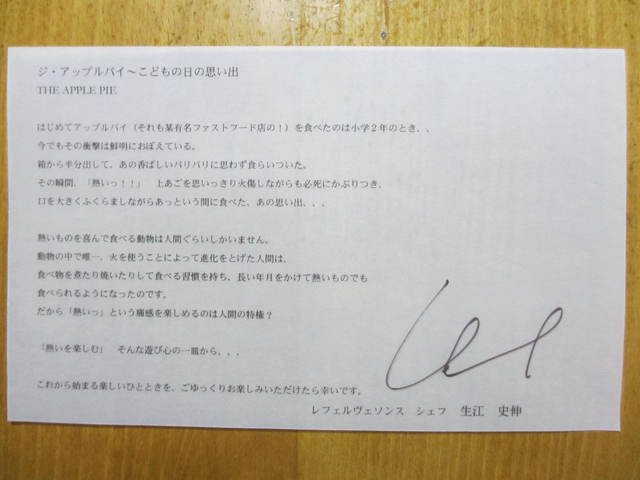 ジ・アップルパイ～こどもの日の思い出
THE APPLE PIE
はじめてアップルパイ（それも某有名ファストフード店の！）を食べたのは小学２年のとき、、
今でもその衝撃は鮮明におぼえている。
箱から半分出して、あの香ばしいパリパリに思わず食らいついた。
その瞬間、「熱いっ！！」　上あごを思いっきり火傷しながらも必死にかぶりつき、
口を大きくふくらましながらあっという間に食べた、あの思い出、、、
熱いものを喜んで食べる動物は人間ぐらいしかいません。
動物の中で唯一、火を使うことによって進化をとげた人間は、
食べ物を煮たり焼いたりして食べる習慣を持ち、長い年月をかけて熱いものでも
食べられるようになったのです。
だから「熱いっ」という痛感を楽しめるのは人間の特権？
「熱いを楽しむ」　そんな遊び心の一皿から、、、
これから始まる楽しいひとときを、ごゆっくりお楽しみいただけたら幸いです。
レフェルヴェソンス　シェフ　生江　史伸